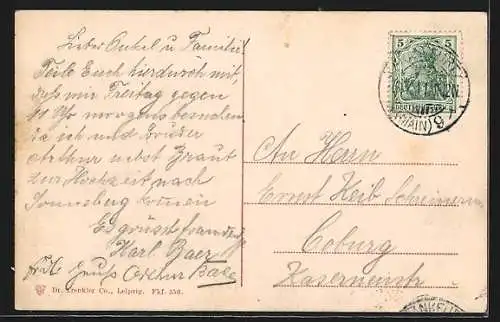 Lieber Onkel u Familie
Teile Euch hierdurch mit,
daß wir Freitag gegen
10 Uhr morgens
ich und Bruder
Arthur nebst Braut
zur Hochzeit nach
Sonneberg kommen
Es grüsst
Karl Baer
Gruß Oscar Baer
Dr. Trenkler Co., Leipzig. Fkf. 350.
5
5
DEUTSCHES REICH
(MAIN) 9
An Herrn
Ernst Heib Schreiner
Coburg
Kasernenstr